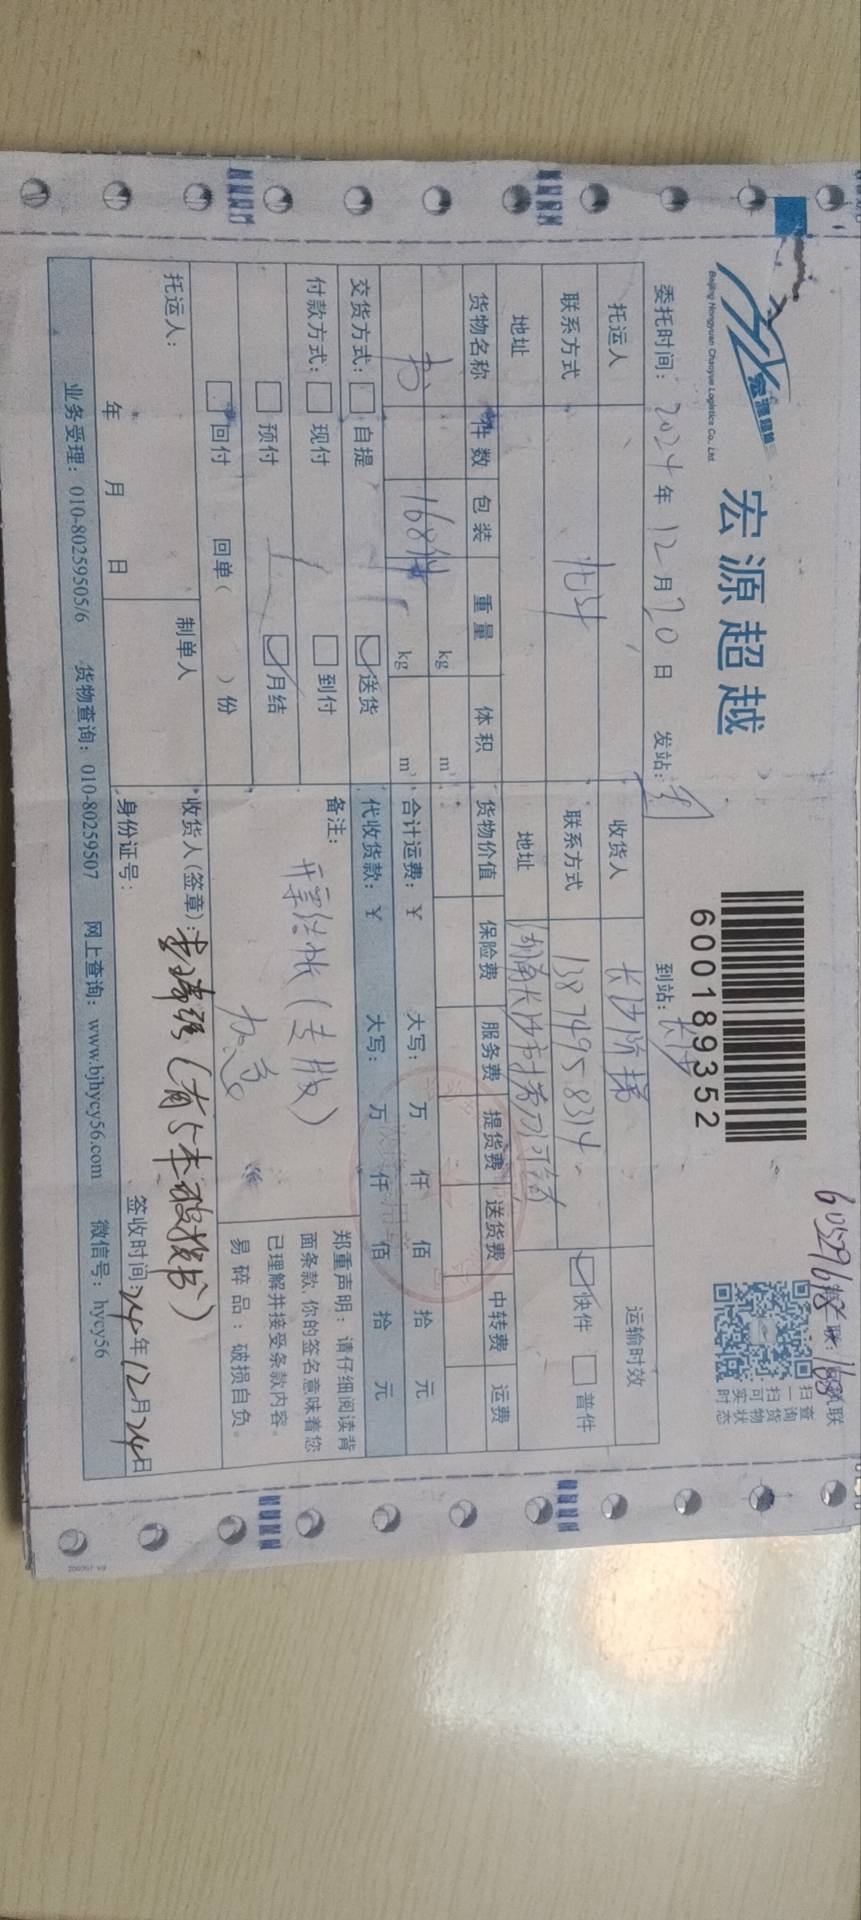 宏源超越
Beijing Hongyuan Chaoyue Logistics Co., Ltd.
宏源超越
600189352
扫一扫
查询货物
可实时状态
委托时间：2024年12月20日 发站： 到站：长沙
托运人 收货人 长沙阶梯 运输时效
联系方式 联系方式 13874958314 快件 普件
地址 地址 湖南长沙市
货物名称 件数 包装 重量 体积 货物价值 保险费 服务费 提货费 送货费 中转费 运费
kg m³
书 168件 kg m³ 合计运费：￥ 大写： 万 仟 佰 拾 元
交货方式： 自提 送货 代收货款：￥ 大写： 万 仟 佰 拾 元
付款方式： 现付 到付 备注：
预付 月结
回付 回单（ ）份
郑重声明：请仔细阅读背
面条款，你的签名意味着您
已理解并接受条款内容。
易碎品：破损自负。
托运人： 制单人 收货人(签章)： (有5本破损书)
年 月 日 身份证号： 签收时间：24年12月24日
业务受理：010-80259505/6 货物查询：010-80259507 网上查询：www.bjhycy56.com 微信号：hycy56